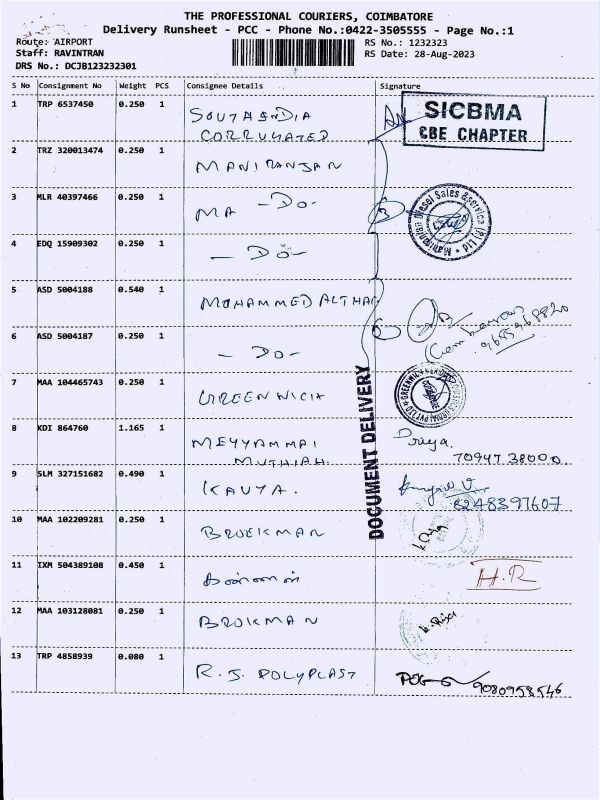 THE PROFESSIONAL COURIERS, COIMBATORE
Delivery Runsheet - PCC - Phone No.:0422-3505555 - Page No.:1
Route: AIRPORT RS No.: 1232323
Staff: RAVINTRAN RS Date: 28-Aug-2023
DRS No.: DCJB123232301
S No Consignment No Weight PCS Consignee Details Signature
1 TRP 6537450 0.250 1 SOUTH INDIA
CORRUGATED
SICBMA
CBE CHAPTER
2 TRZ 320013474 0.250 1 MANIRANJAN
3 MLR 40397466 0.250 1 MA -DO-
Manirangan Diesel Sales & Service (P) Ltd
4 EDQ 15909302 0.250 1 - DO -
5 ASD 5004188 0.540 1 MOHAMMED ALTHAF
6 ASD 5004187 0.250 1 - DO -
9655968820
7 MAA 104465743 0.250 1 GREENWICH
DOCUMENT DELIVERY
8 KDI 864760 1.165 1 MEYYAMMAI
MUTHIAH
Priya.
70947 38000
9 SLM 327151682 0.490 1 KAVYA.
8248397607
10 MAA 102209281 0.250 1 BROEKMAN
11 IXM 504389108 0.450 1
H.R
12 MAA 103128081 0.250 1 BROKMAN
13 TRP 4858939 0.080 1 R.J. POLYPLAST
9080958546